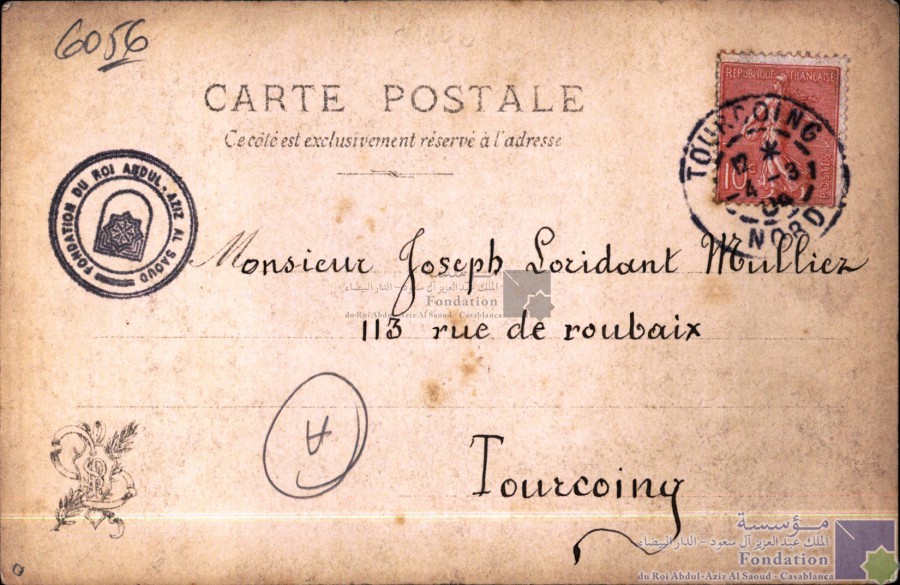 6056
CARTE POSTALE
Ce côté est exclusivement réservé à l'adresse
RÉPUBLIQUE FRANÇAISE
10 c
POSTES
TOURCOING
12 *
4 - 3
04
NORD
FONDATION DU ROI ABDUL-AZIZ AL SAOUD
Monsieur Joseph Loridant Mulliez
مؤسسة
الملك عبد العزيز آل سعود - الدار البيضاء
Fondation
du Roi Abdul-Aziz Al Saoud - Casablanca
113 rue de roubaix
A
Tourcoing
مؤسسة
الملك عبد العزيز آل سعود - الدار البيضاء
Fondation
du Roi Abdul-Aziz Al Saoud - Casablanca